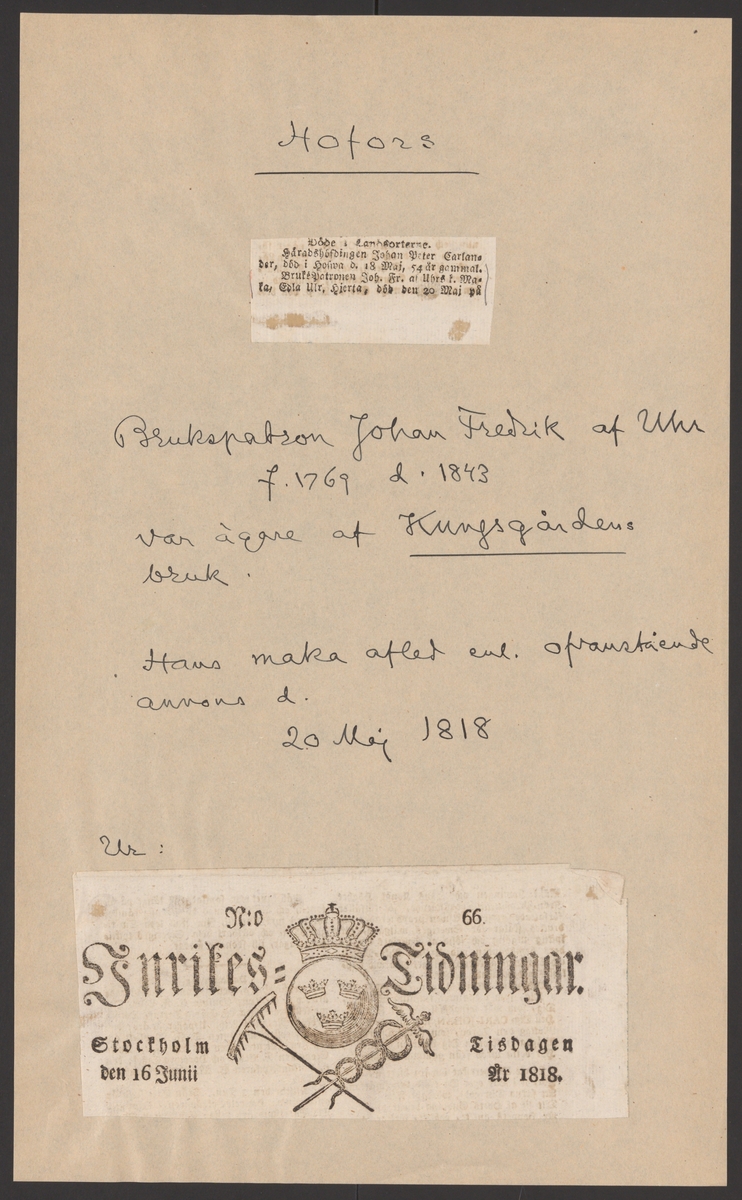 Hofors
Döde i Landsorterne.
Häradshöfdingen Johan Peter Carlan-
der, död i Hofwa d. 18 Maj, 54 år gammal.
BruksPatronen Joh. Fr. af Uhrs k. Ma-
ka, Edla Ulr. Hjerta, död den 20 Maj på
Brukspatron Johan Fredrik af Uhr
f. 1769 d. 1843
var ägare af Kungsgårdens
bruk.
Hans maka afled enl. ofvanstående
annons d.
20 Maj 1818
Ur:
N:o 66.
Inrikes-Tidningar.
Stockholm Tisdagen
den 16 Junii År 1818.